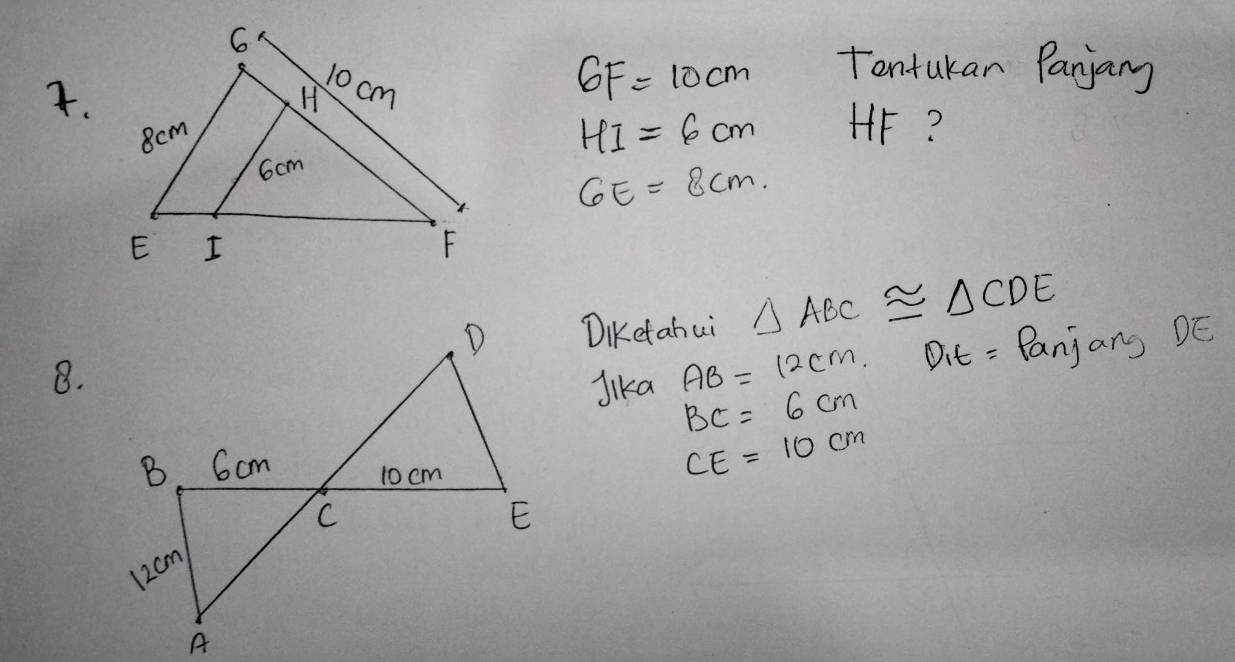 7.
G
10 cm
H
8cm
6cm
E I F
GF = 10 cm
HI = 6 cm
GE = 8cm.
Tentukan Panjang
HF ?
8.
D
B 6cm
10 cm
C
E
12cm
A
Diketahui △ ABC ≅ △CDE
Jika AB = 12cm. Dit = Panjang DE
BC = 6 cm
CE = 10 cm